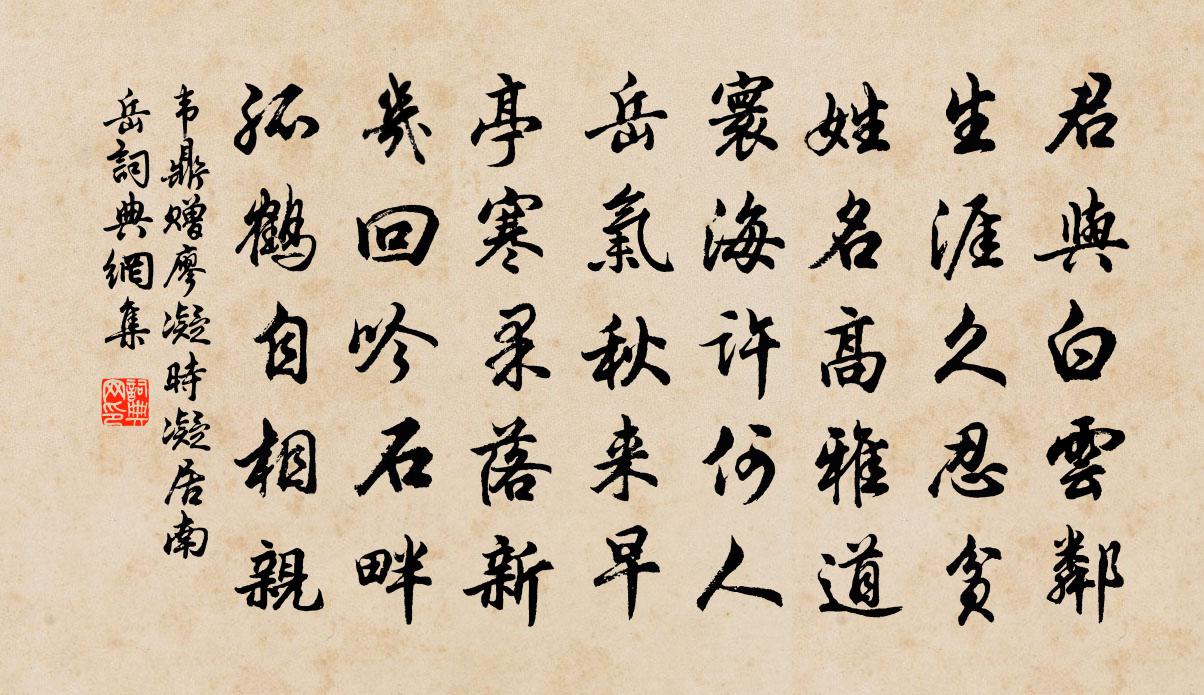 君與白雲鄰
生涯久忍貧
姓名高雅道
寰海許何人
岳氣秋来早
亭寒果落新
幾回吟石畔
孤鶴自相親
韦鼎赠廖凝時凝居南
岳詞典網集
詞典
网印